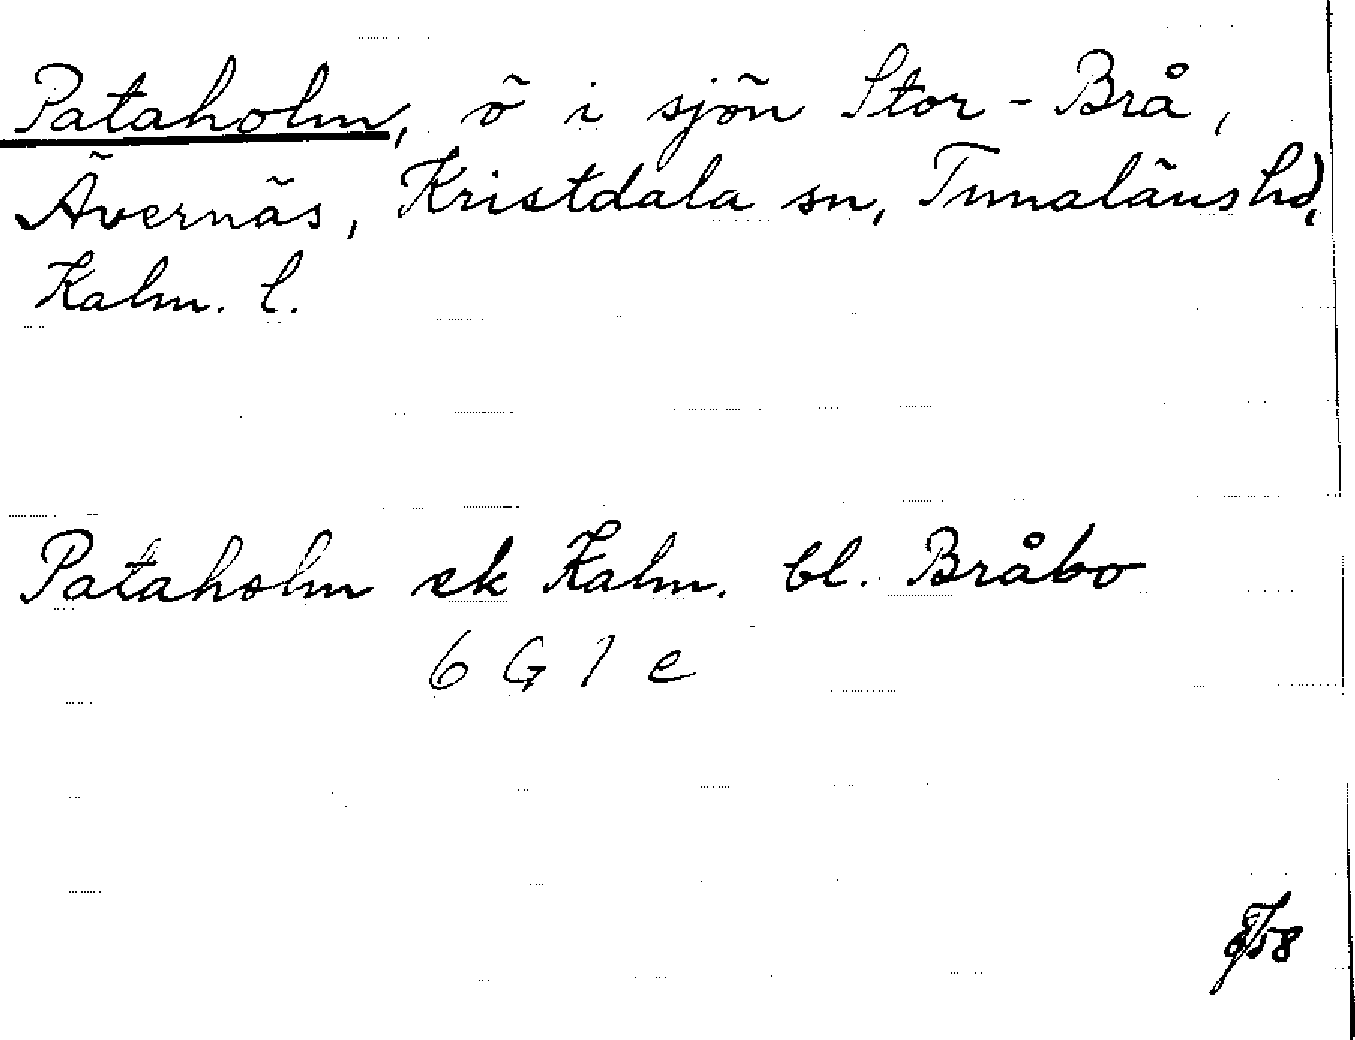 Pataholm, ö i sjön Stor-Brå,
Ävernäs, Kristdala sn, Tunaläns hd,
Kalm. l.
Pataholm ek Kalm. bl. Bråbo
6 G 1 e